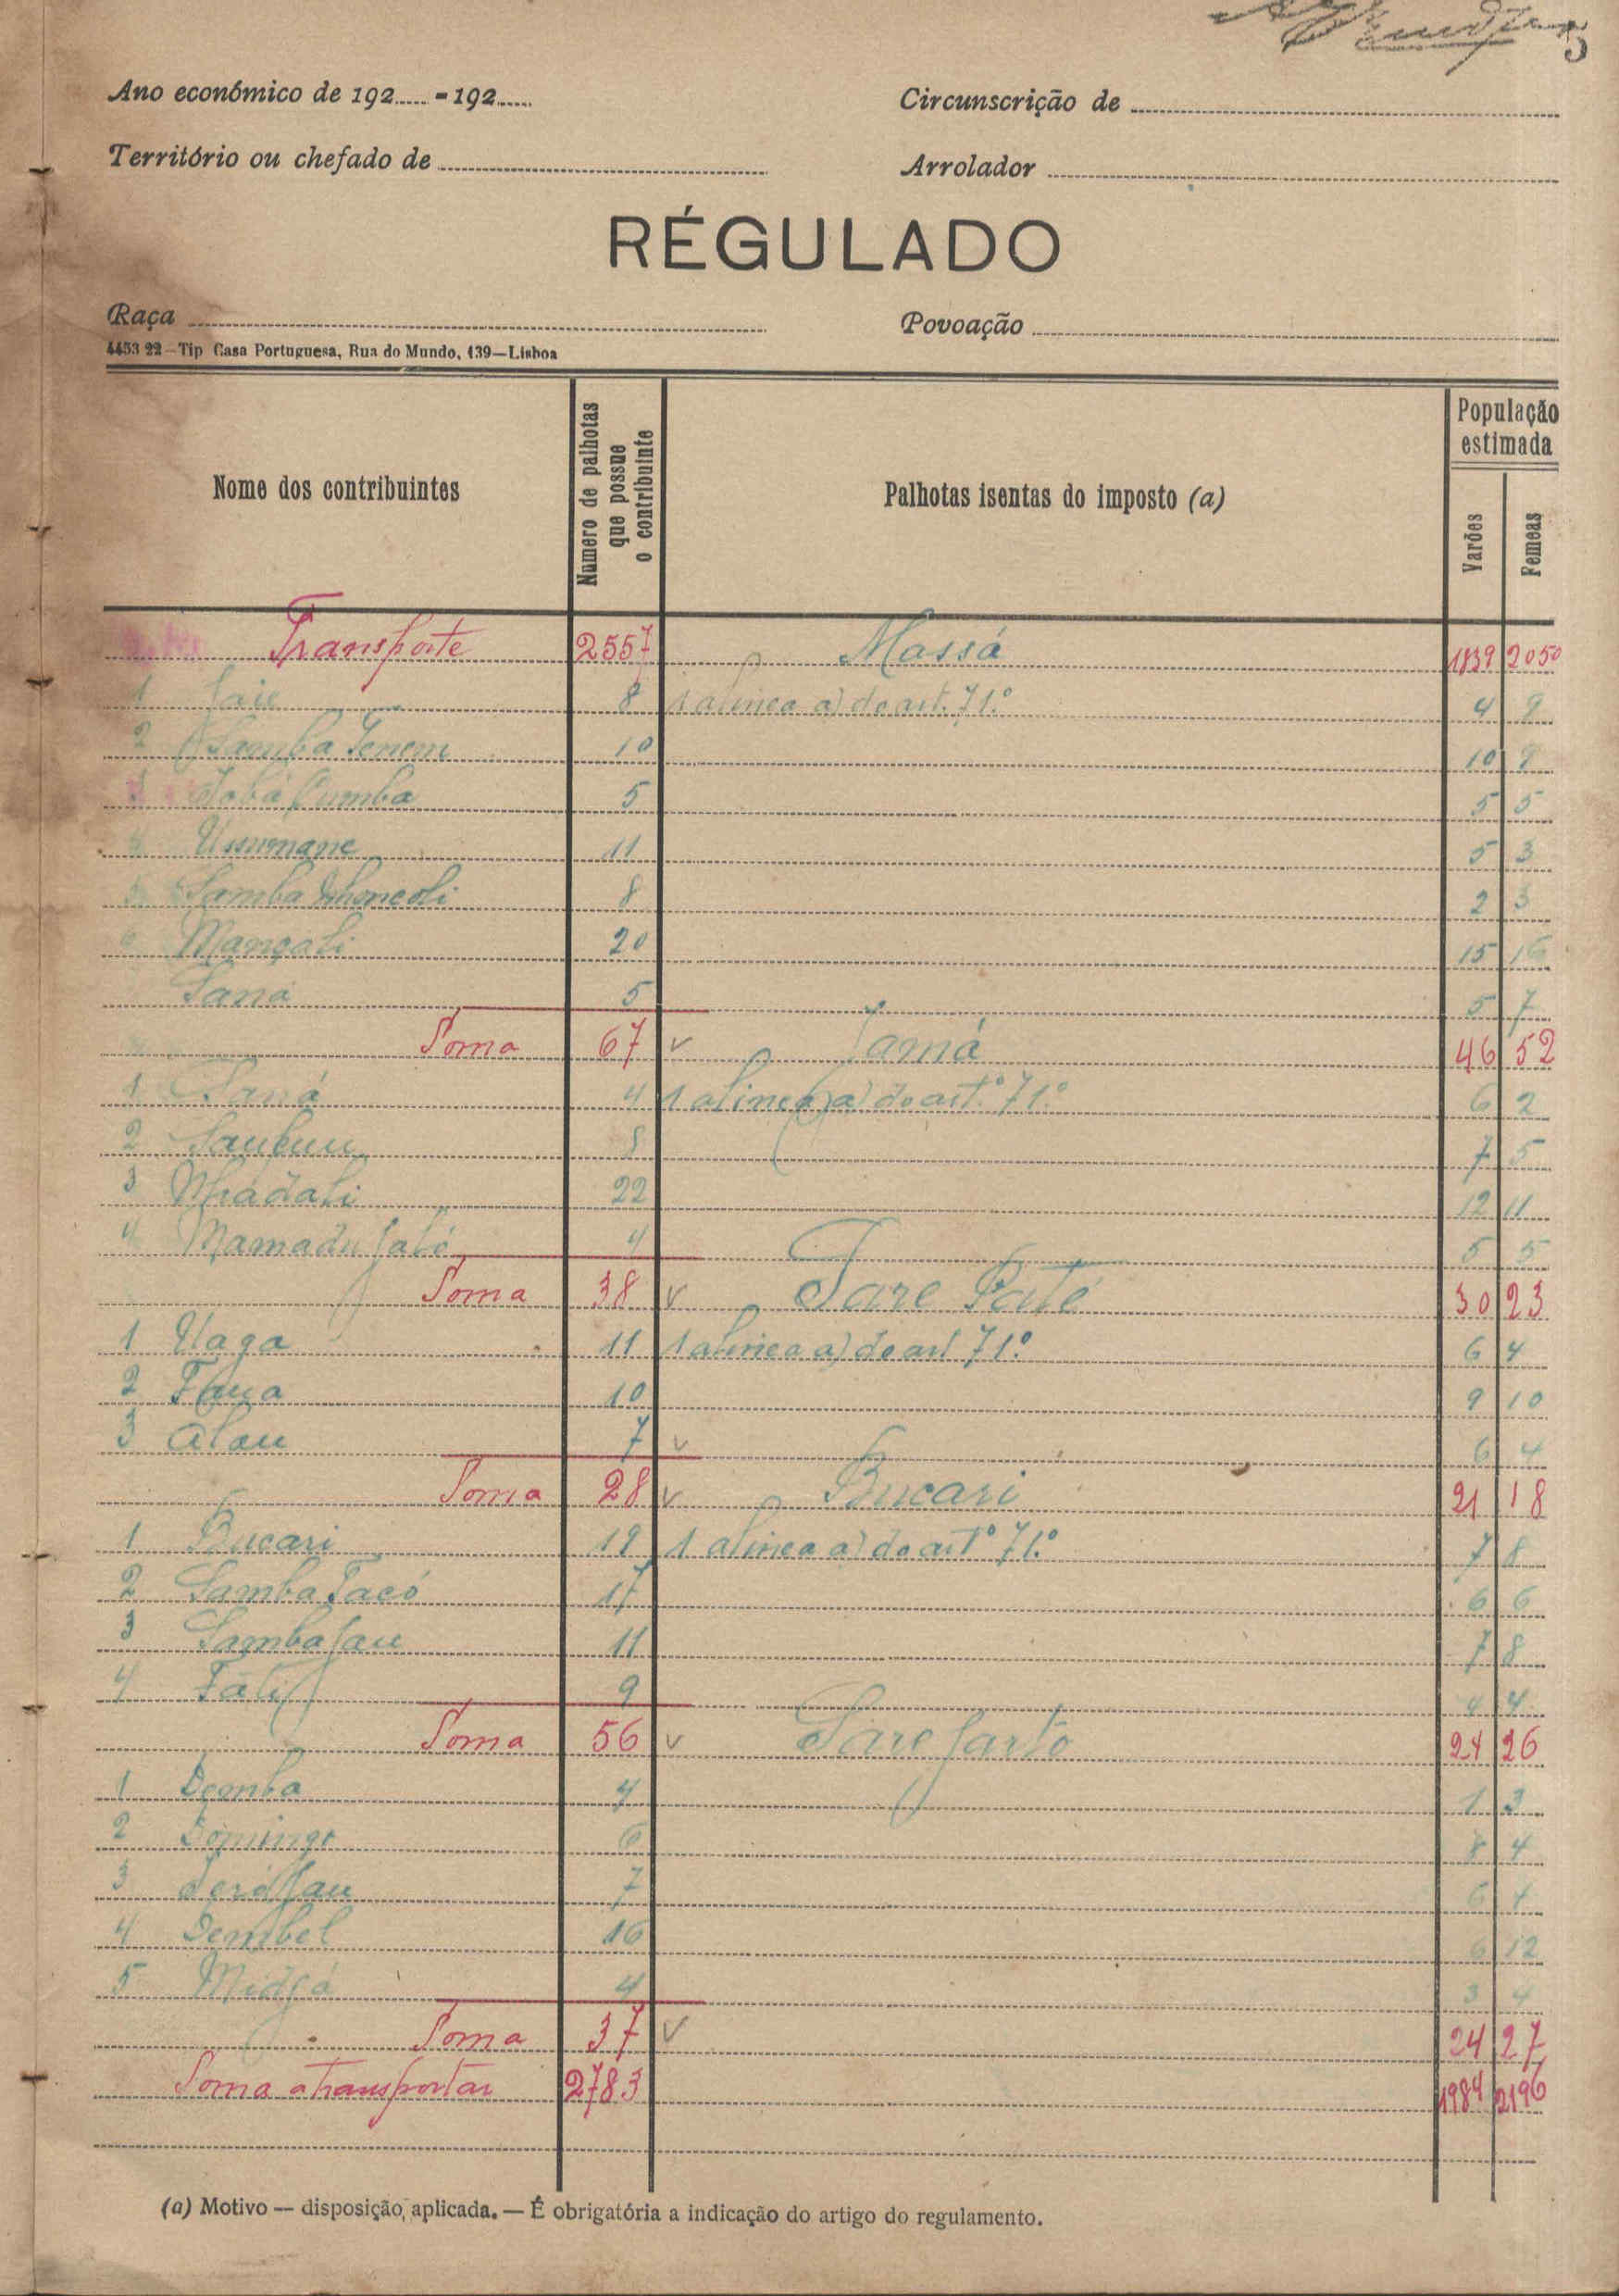 5
Ano económico de 192...... - 192......
Circunscrição de
Território ou chefado de
Arrolador
RÉGULADO
Raça
Povoação
4453 22 — Tip Casa Portuguesa, Rua do Mundo, 139 — Lisboa
Nome dos contribuintes
Numero de palhotas que possue o contribuinte
Palhotas isentas do imposto (a)
População estimada
Varões
Femeas
Transporte 2557 Massá 1839 2050
1 8 1 alinea a) do art. 71.º 4 9
2 Samba Tenem 10 10 9
3 Cumba 5 5 5
4 Ussumane 11 5 3
5 Samba 8 2 3
6 Mançali 20 15 16
Saná 5 5 7
Soma 67 v Jamá 46 52
1 Saná 4 1 alinea a) do artº 71.º 6 2
2 8 7 5
3 Mádali 22 12 11
4 Mamadu Jaló 4 5 5
Soma 38 v Sare Paté 30 23
1 Uaga 11 1 alinea a) do art 71.º 6 4
2 10 9 10
3 Alau 7 v 6 4
Soma 28 v Bucari 21 18
1 Bucari 19 1 alinea a) do artº 71.º 7 8
2 Samba Tacó 17 6 6
3 Samba Jau 11 7 8
4 Fali 9 4 4
Soma 56 v Sare 24 26
1 Demba 4 1 3
2 Domingo 6 8 4
3 Jau 7 6 4
4 Dembel 16 6 12
5 4 3 4
Soma 37 v 24 27
Soma a transportar 2783 1984 2196
(a) Motivo — disposição, aplicada. — É obrigatória a indicação do artigo do regulamento.